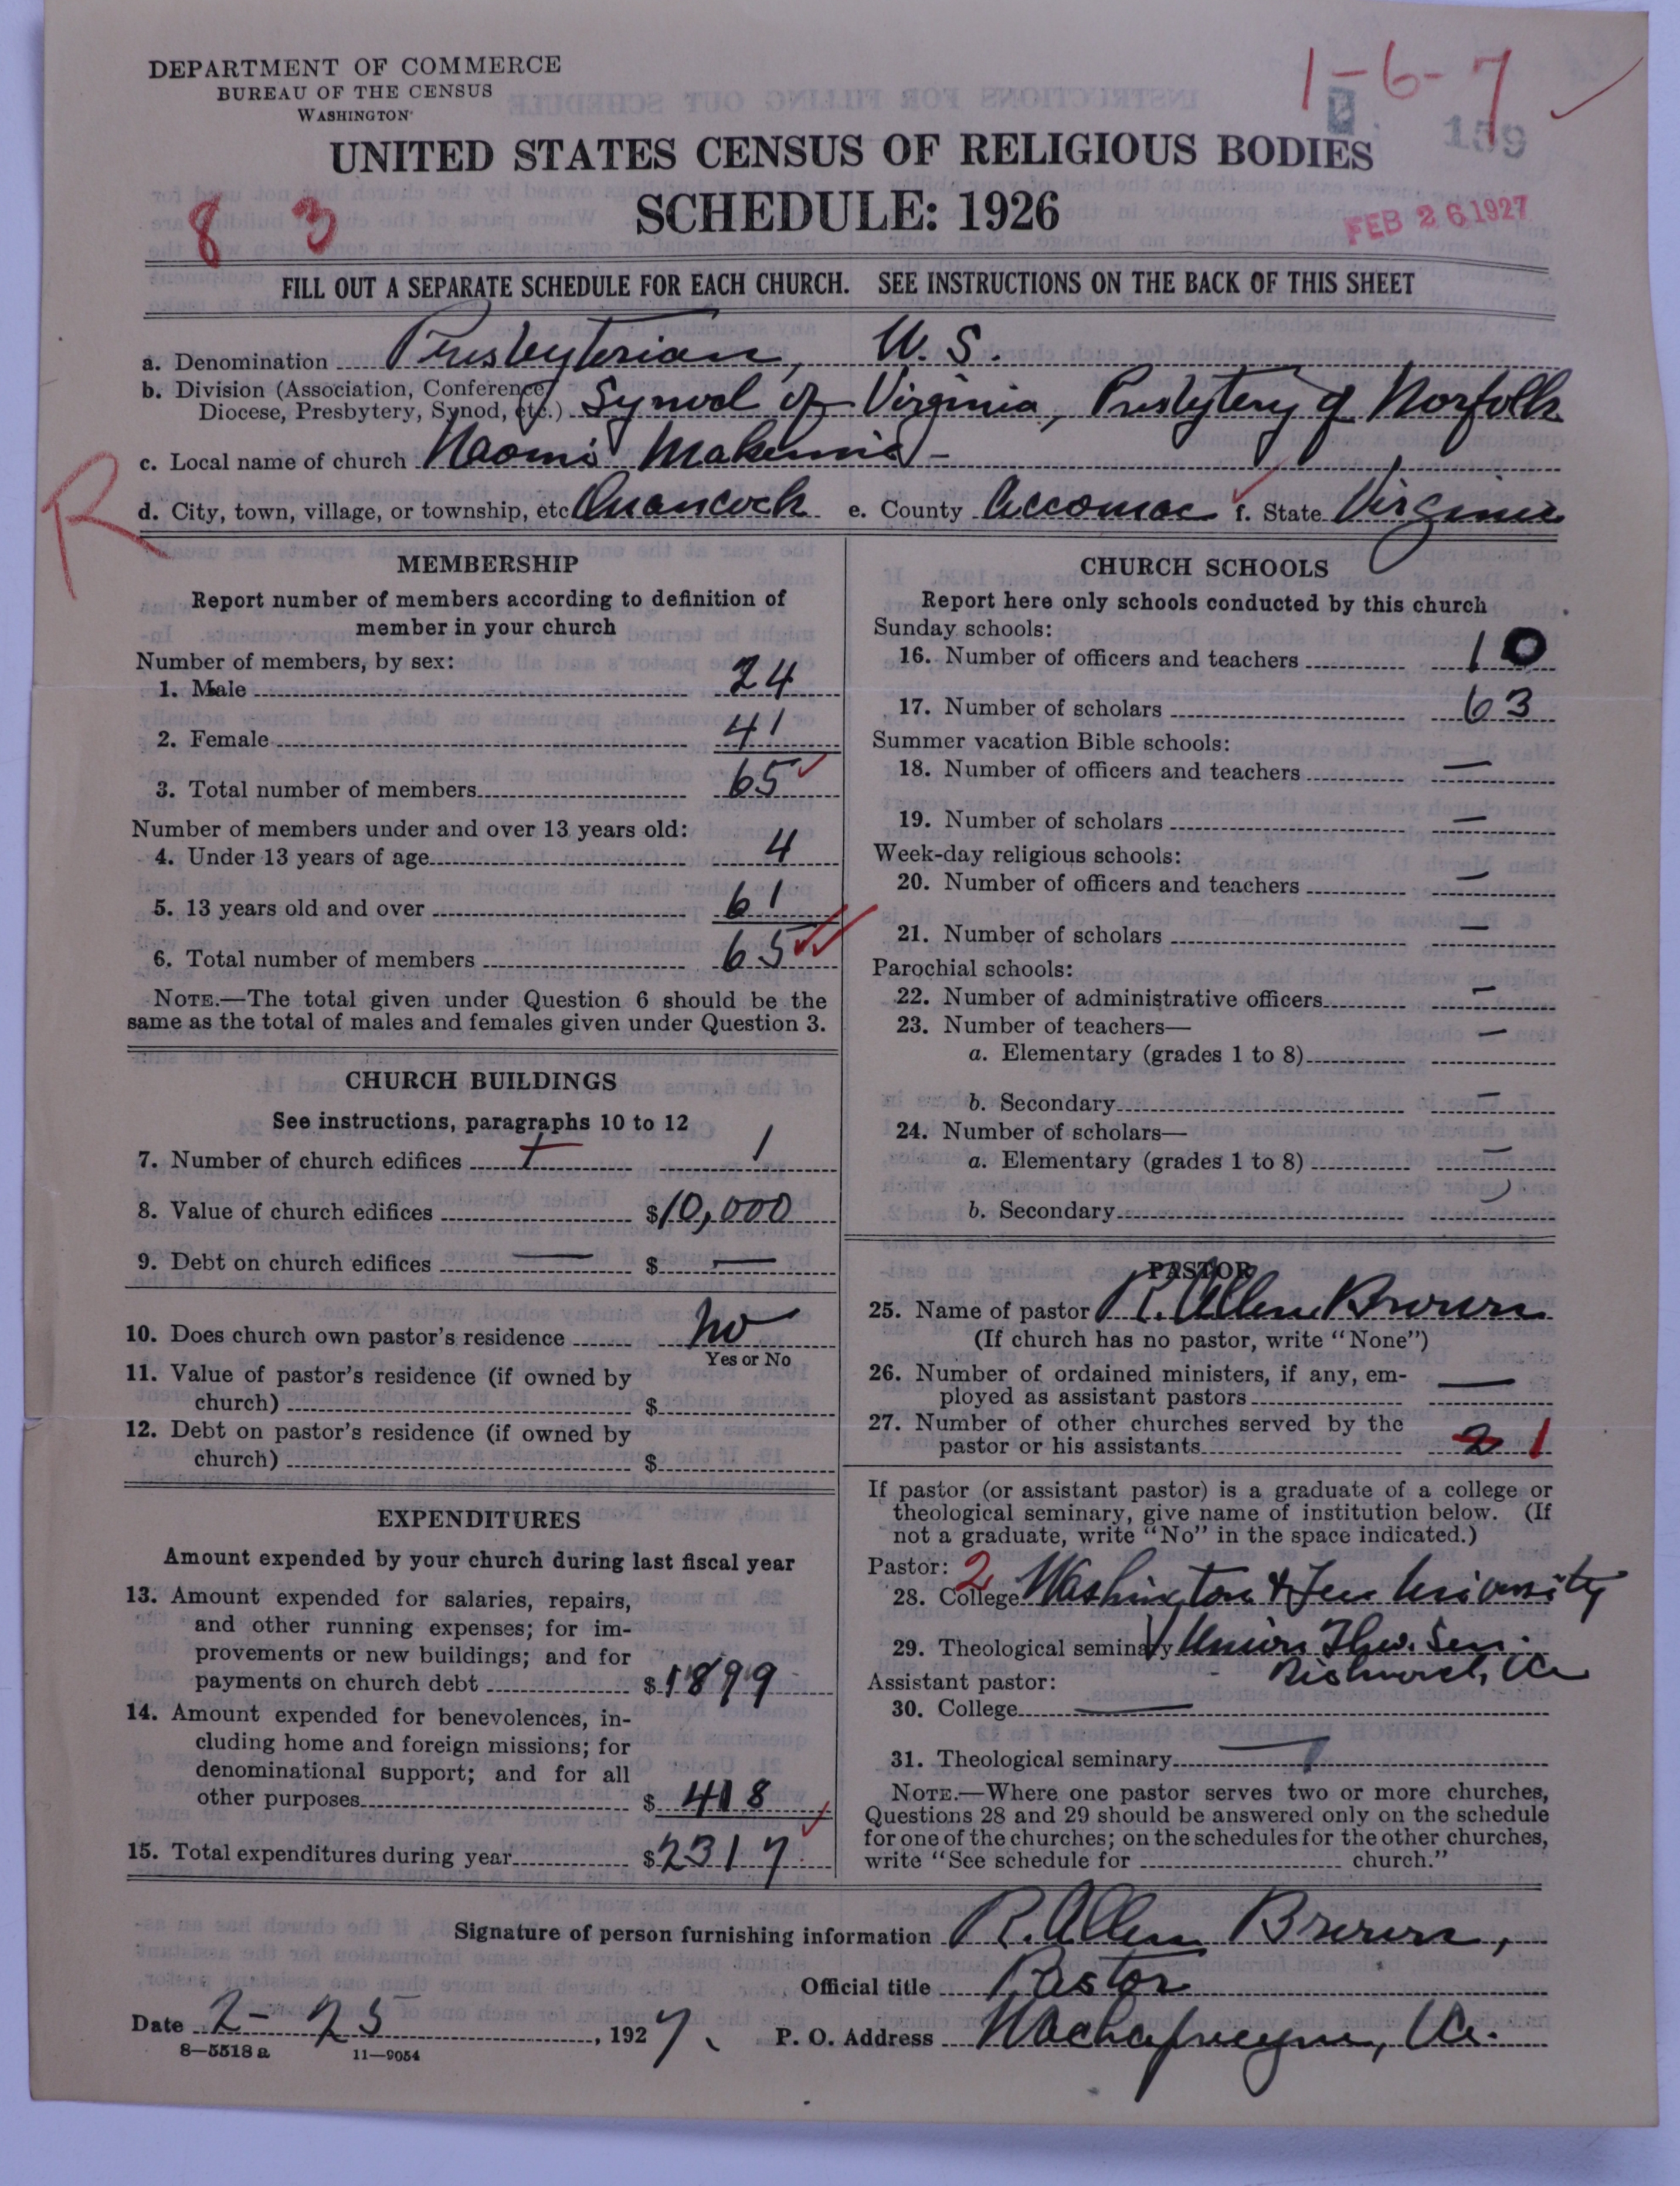 DEPARTMENT OF COMMERCE
BUREAU OF THE CENSUS
WASHINGTON
1-6-7
159
UNITED STATES CENSUS OF RELIGIOUS BODIES
SCHEDULE: 1926
8 3
FEB 26 1927
FILL OUT A SEPARATE SCHEDULE FOR EACH CHURCH. SEE INSTRUCTIONS ON THE BACK OF THIS SHEET
a. Denomination Presbyterian, U.S.
b. Division (Association, Conference,
Diocese, Presbytery, Synod, etc.) Synod of Virginia, Presbytery of Norfolk
c. Local name of church Naomi Makemie
R
d. City, town, village, or township, etc Onancock e. County Accomac f. State Virginia
MEMBERSHIP
Report number of members according to definition of
member in your church
Number of members, by sex:
1. Male 24
2. Female 41
3. Total number of members 65
Number of members under and over 13 years old:
4. Under 13 years of age 4
5. 13 years old and over 61
6. Total number of members 65
NOTE.—The total given under Question 6 should be the
same as the total of males and females given under Question 3.
CHURCH BUILDINGS
See instructions, paragraphs 10 to 12
7. Number of church edifices 1 1
8. Value of church edifices $10,000
9. Debt on church edifices — $ —
10. Does church own pastor's residence No
Yes or No
11. Value of pastor's residence (if owned by
church) $
12. Debt on pastor's residence (if owned by
church) $
EXPENDITURES
Amount expended by your church during last fiscal year
13. Amount expended for salaries, repairs,
and other running expenses; for im-
provements or new buildings; and for
payments on church debt $1899
14. Amount expended for benevolences, in-
cluding home and foreign missions; for
denominational support; and for all
other purposes $ 418
15. Total expenditures during year $2317
CHURCH SCHOOLS
Report here only schools conducted by this church
Sunday schools:
16. Number of officers and teachers 10
17. Number of scholars 63
Summer vacation Bible schools:
18. Number of officers and teachers —
19. Number of scholars —
Week-day religious schools:
20. Number of officers and teachers —
21. Number of scholars —
Parochial schools:
22. Number of administrative officers —
23. Number of teachers— —
a. Elementary (grades 1 to 8)
b. Secondary —
24. Number of scholars—
a. Elementary (grades 1 to 8) —
b. Secondary
PASTOR
25. Name of pastor R. Allen Brown
(If church has no pastor, write "None")
26. Number of ordained ministers, if any, em-
ployed as assistant pastors —
27. Number of other churches served by the
pastor or his assistants 2 1
If pastor (or assistant pastor) is a graduate of a college or
theological seminary, give name of institution below. (If
not a graduate, write "No" in the space indicated.)
Pastor: 2
28. College Washington & Lee University
29. Theological seminary Union Theo. Sem.
Richmond, Va
Assistant pastor:
30. College —
31. Theological seminary —
NOTE.—Where one pastor serves two or more churches,
Questions 28 and 29 should be answered only on the schedule
for one of the churches; on the schedules for the other churches,
write "See schedule for church."
Signature of person furnishing information R. Allen Brown,
Official title Pastor
Date 2-25, 1927. P. O. Address Wachapreague, Va.
8—5518 a 11—9054